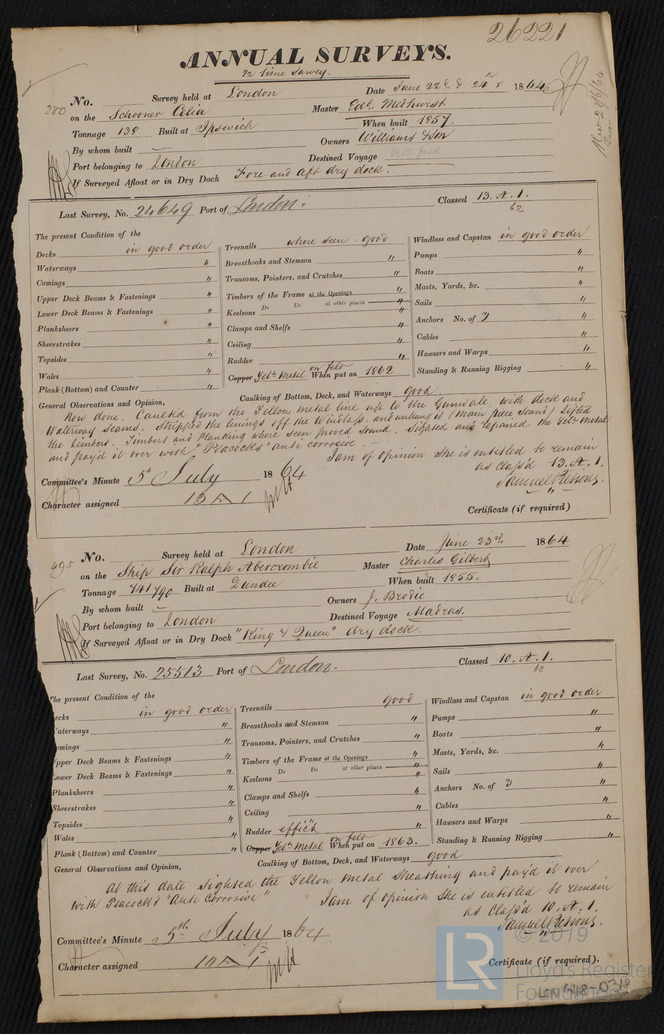 26221
ANNUAL SURVEYS.
1/2 time Survey.
280 No. Survey held at London Date June 22d & 24th 1864.
on the Schooner Celia Master Edw. Medhurst
Tonnage 138 Built at Ipswich When built 1857.
By whom built — Owners Williams & Son
Port belonging to London Destined Voyage
If Surveyed Afloat or in Dry Dock Fore and aft dry dock.
Last Survey, No. 24649 Port of London. Classed 13. A. 1.
62
The present Condition of the
Decks in good order
Waterways "
Comings "
Upper Deck Beams & Fastenings "
Lower Deck Beams & Fastenings "
Planksheers "
Sheerstrakes "
Topsides "
Wales "
Plank (Bottom) and Counter "
Treenails where seen good
Breasthooks and Stemson "
Transoms, Pointers, and Crutches "
Timbers of the Frame at the Openings "
Do Do at other places "
Keelsons "
Clamps and Shelfs "
Ceiling "
Rudder "
Copper Yelo Metal on felt When put on 1862
Windlass and Capstan in good order
Pumps "
Boats "
Masts, Yards, &c. "
Sails "
Anchors No. of 3 "
Cables "
Hawsers and Warps "
Standing & Running Rigging "
Caulking of Bottom, Deck, and Waterways good
General Observations and Opinion,
Now done. Caulked from the Yellow metal line up to the Gunwale, with deck and
Waterway Seams. Stripped the linings off the Windlass, and (Main piece Sound) Lifted
the limbers. Timbers and Planking where seen proved Sound. Sighted and repaired the Yelo Metal
and pay'd it over with "Peacock's" anti corrosive. —
I am of opinion She is entitled to remain
as Class'd 13. A. 1.
Samuel Pretious.
Committee's Minute 5th July 1864
Character assigned 13 A 1
Certificate (if required)
495 No. Survey held at London Date June 23rd. 1864
on the Ship Sir Ralph Abercrombie Master Charles Gilbert
Tonnage 741/790 Built at Dundee When built 1855.
By whom built — Owners J. Brodie
Port belonging to London Destined Voyage Madras.
If Surveyed Afloat or in Dry Dock "King & Queen" dry dock.
Last Survey, No. 25513 Port of London. Classed 10. A. 1.
63
The present Condition of the
Decks in good order
Waterways "
Comings "
Upper Deck Beams & Fastenings "
Lower Deck Beams & Fastenings "
Planksheers "
Sheerstrakes "
Topsides "
Wales "
Plank (Bottom) and Counter "
Treenails good
Breasthooks and Stemson "
Transoms, Pointers, and Crutches "
Timbers of the Frame at the Openings "
Do Do at other places "
Keelsons "
Clamps and Shelfs "
Ceiling "
Rudder effict "
Copper Yelo Metal on felt When put on 1863.
Windlass and Capstan in good order
Pumps "
Boats "
Masts, Yards, &c. "
Sails "
Anchors No. of 3 "
Cables "
Hawsers and Warps "
Standing & Running Rigging "
Caulking of Bottom, Deck, and Waterways good
General Observations and Opinion,
At this date Sighted the Yellow Metal Sheathing and pay'd it over
with Peacock's "Anti Corrosive" I am of opinion She is entitled to remain
as Class'd 10. A. 1.
Samuel Pretious.
Committee's Minute 5th July 1864
Character assigned 10 A 1
Certificate (if required).
© 2019
LR
Lloyd's Register
Foundation